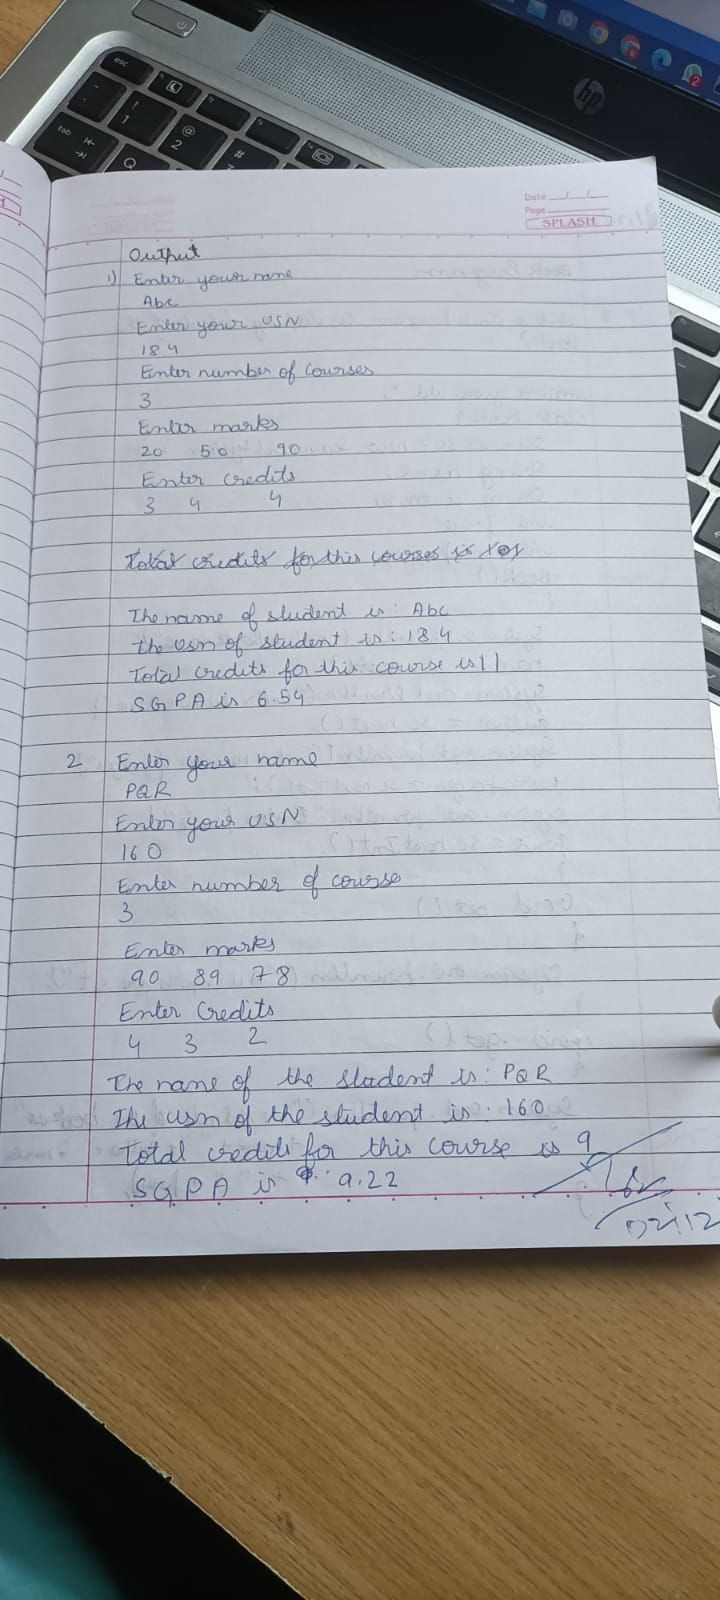 esc
!
1
@
2
#
tab
Q
hp
2
Date
Page
SPLASH
Output
1) Enter your name
Abc
Enter your USN
184
Enter number of Courses
3
Enter marks
20 50 90
Enter credits
3 4 4
Total credits for this courses is
The name of student is: Abc
the usn of student is: 184
Total credits for this course is 11
SGPA is 6.54
2 Enter your name
PQR
Enter your USN
160
Enter number of course
3
Enter marks
90 89 78
Enter Credits
4 3 2
The name of the student is: PQR
The usn of the student is: 160
Total credits for this course is 9
SGPA is 9.22